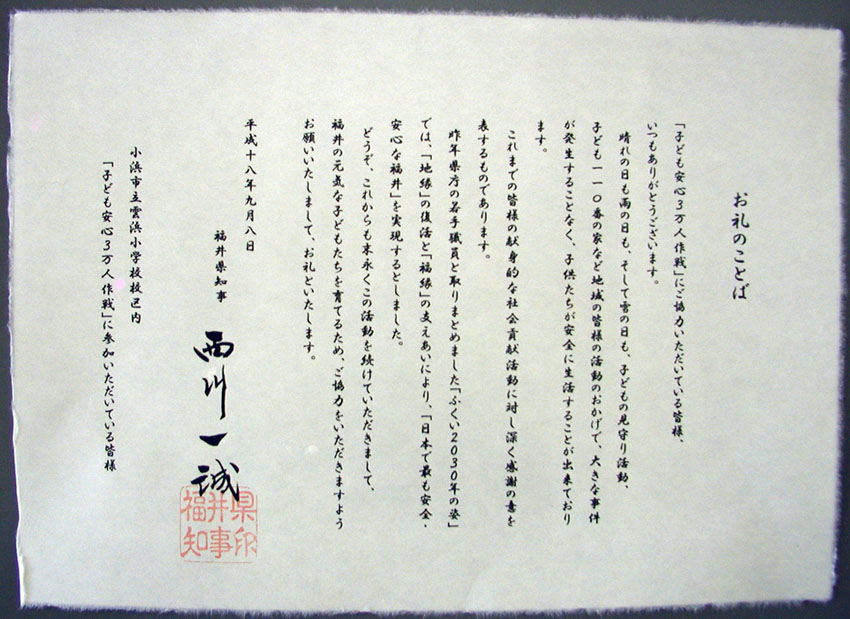 お礼のことば
「子ども安心3万人作戦」にご協力いただいている皆様、
いつもありがとうございます。
晴れの日も雨の日も、そして雪の日も、子どもの見守り活動、
子ども一一〇番の家など地域の皆様の活動のおかげで、大きな事件
が発生することなく、子供たちが安全に生活することが出来ており
ます。
これまでの皆様の献身的な社会貢献活動に対し深く感謝の意を
表するものであります。
昨年県庁の若手職員と取りまとめました「ふくい2030年の姿」
では、「地縁」の復活と「福縁」の支えあいにより、「日本で最も安全・
安心な福井」を実現するとしました。
どうぞ、これからも末永くこの活動を続けていただきまして、
福井の元気な子どもたちを育てるため、ご協力をいただきますよう
お願いいたしまして、お礼といたします。
平成十八年九月八日
福井県知事
西川一誠
福井県知事印
小浜市立雲浜小学校校区内
「子ども安心3万人作戦」に参加いただいている皆様